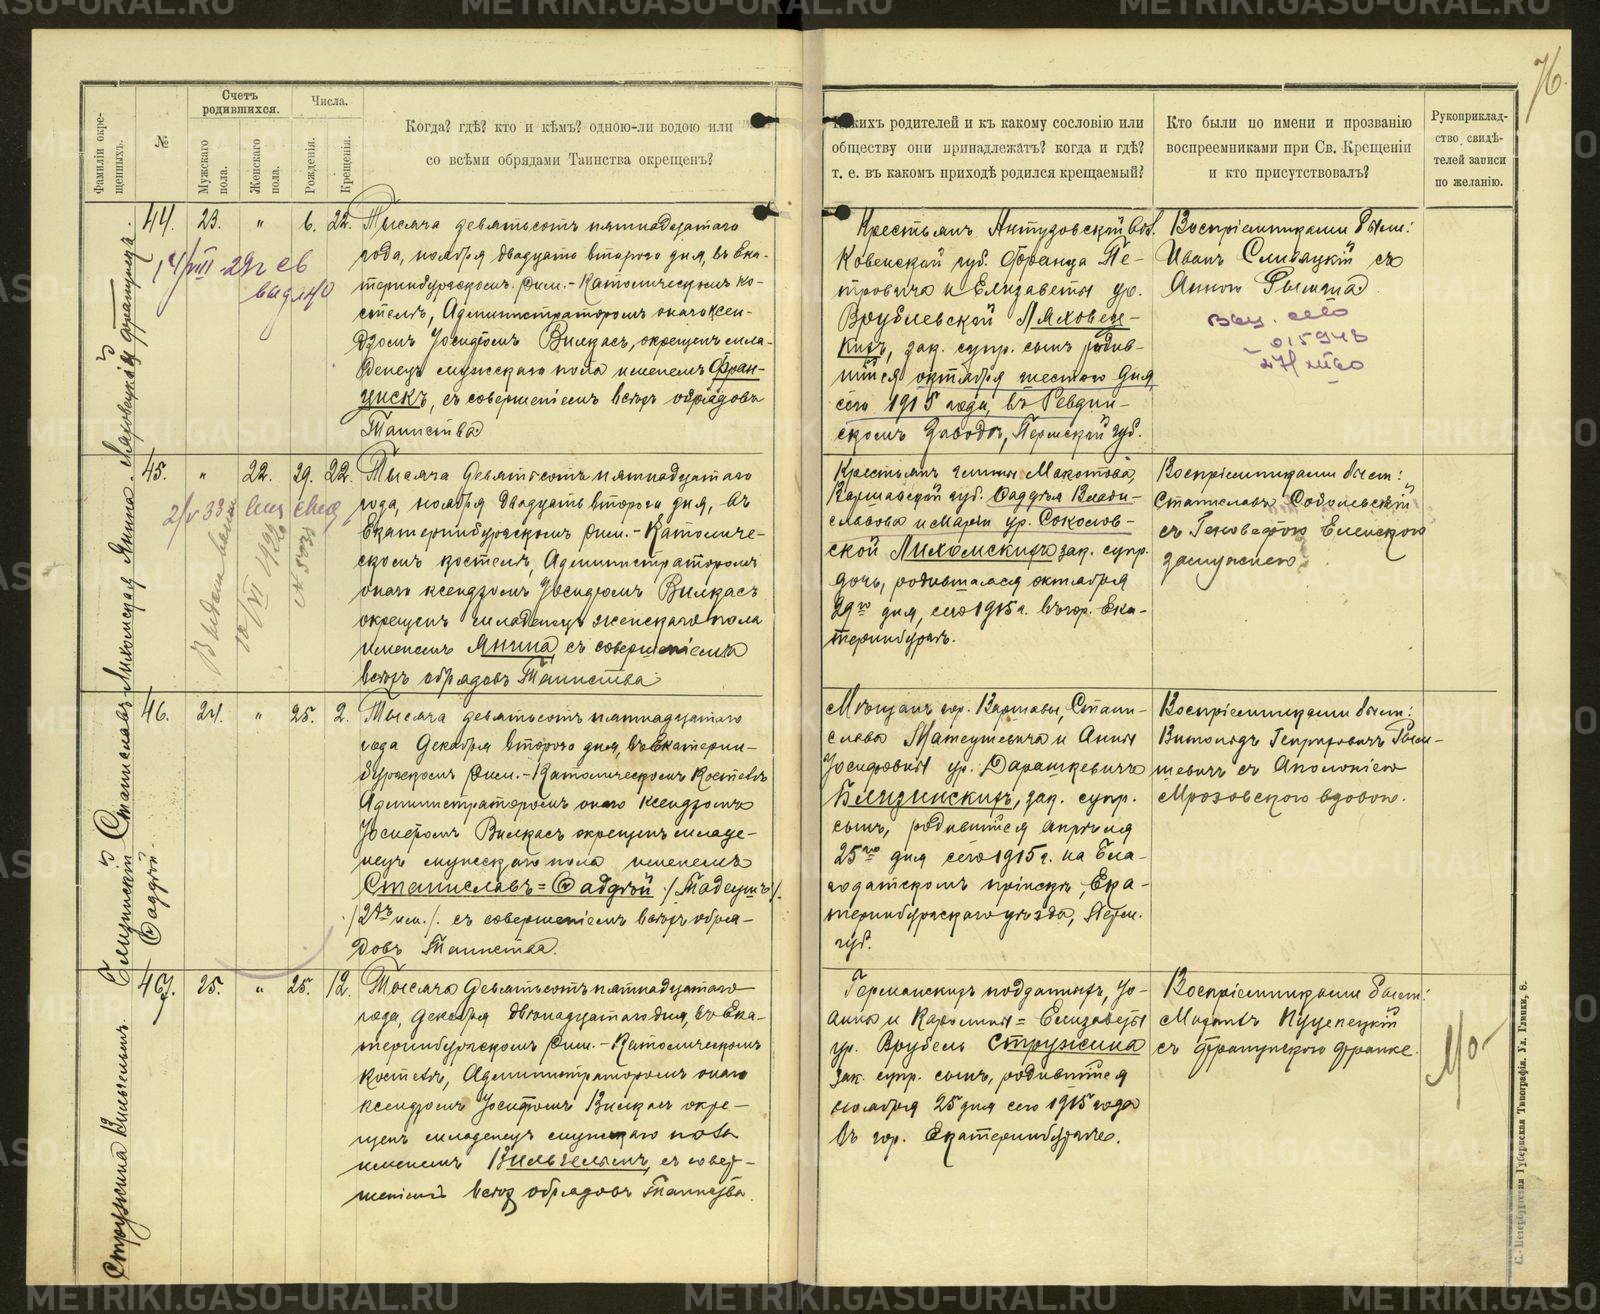 METRIKI.GASO-URAL.RU
76.
Фамиліи окрещенныхъ.
№
Счетъ родившихся.
Мужскаго пола.
Женскаго пола.
Числа.
Рожденія.
Крещенія.
Когда? гдѣ? кто и кѣмъ? одною-ли водою или
со всѣми обрядами Таинства окрещенъ?
Какихъ родителей и къ какому сословію или
обществу они принадлежатъ? когда и гдѣ?
т. е. въ какомъ приходѣ родился крещаемый?
Кто были по имени и прозванію
воспреемниками при Св. Крещеніи
и кто присутствовалъ?
Рукоприклад-
ство свидѣ-
телей записи
по желанію.
Ляховецкій Францискъ.
44. 23. " 6. 22.
Тысяча девятьсотъ пятнадцатаго
года, ноября двадцать второго дня, въ Ека-
теринбургскомъ Рим.-Католическомъ ко-
стелѣ, Администраторомъ онаго ксен-
дзомъ Іосифомъ Вилкасъ, окрещенъ мла-
денецъ мужскаго пола именемъ Фран-
цискъ, съ совершеніемъ всѣхъ обрядовъ
Таинства
Крестьянъ Антузовской вол.
Ковенской губ. Франца Пе-
тровича и Елизаветы ур.
Врублевской Ляховец-
кихъ, зак. супр. сынъ родив-
шійся октября шестого дня
сего 1915 года, въ Ревдин-
скомъ заводѣ, Пермской губ.
Воспріемниками были:
Иванъ Сливацкій съ
Анною
Лихомская Янина.
45. " 22. 29. 22.
Тысяча девятьсотъ пятнадцатаго
года, ноября двадцать второго дня, въ
Екатеринбургскомъ Рим.-Католиче-
скомъ костелѣ, Администраторомъ
онаго ксендзомъ Іосифомъ Вилкасъ
окрещенъ младенецъ женскаго пола
именемъ Янина, съ совершеніемъ
всѣхъ обрядовъ Таинства.
Крестьянъ гмины Макотова,
Варшавской губ. Фаддѣя Влади-
славова и Маріи ур. Соколов-
ской Лихомскихъ зак. супр.
дочь, родившаяся октября
29го дня, сего 1915 г. въ гор. Ека-
теринбургѣ.
Воспріемниками были:
Станиславъ Собольевскій
съ Геновефою Еленскою
замужнею.
Близинскій Станиславъ Фаддѣй.
46. 24. " 25. 2.
Тысяча девятьсотъ пятнадцатаго
года Декабря второго дня, въ Екатерин-
бургскомъ Рим.-Католическомъ Костелѣ
Администраторомъ онаго Ксендзомъ
Іосифомъ Вилкасъ окрещенъ младе-
нецъ мужскаго пола именемъ
Станиславъ=Фаддѣй /Тадеушъ/.
/2хъ им./. съ совершеніемъ всѣхъ обря-
довъ Таинства.
Мѣщанъ гор. Варшавы, Стани-
слава Матеушевича и Анны
Іосифовны ур. Дарашкевичъ
Близинскихъ, зак. супр.
сынъ, родившійся апрѣля
25го дня сего 1915 г. на Бла-
годатскомъ пріискѣ, Ека-
теринбургскаго уѣзда, Перм.
губ.
Воспріемниками были:
Витольдъ Генриховичъ
съ Аполоніею
Мрозовскою вдовою.
Стружина Вильгельмъ.
47. 25. " 25. 12.
Тысяча девятьсотъ пятнадцатаго
года, декабря двѣнадцатаго дня, въ Ека-
теринбургскомъ Рим.-Католическомъ
Костелѣ, Администраторомъ онаго
ксендзомъ Іосифомъ Вилкасъ окре-
щенъ младенецъ мужскаго пола
именемъ Вильгельмъ, съ совер-
шеніемъ всѣхъ обрядовъ Таинства.
Германскихъ подданныхъ, Іо-
анна и Каролины=Елизаветы
ур. Врубель Стружина
зак. супр. сынъ, родившійся
ноября 25 дня сего 1915 года
въ гор. Екатеринбургѣ.
Воспріемниками были:
съ Францискою Франке.
С.-Петербургская Губернская Типографія. Ул. Глинки, 8.